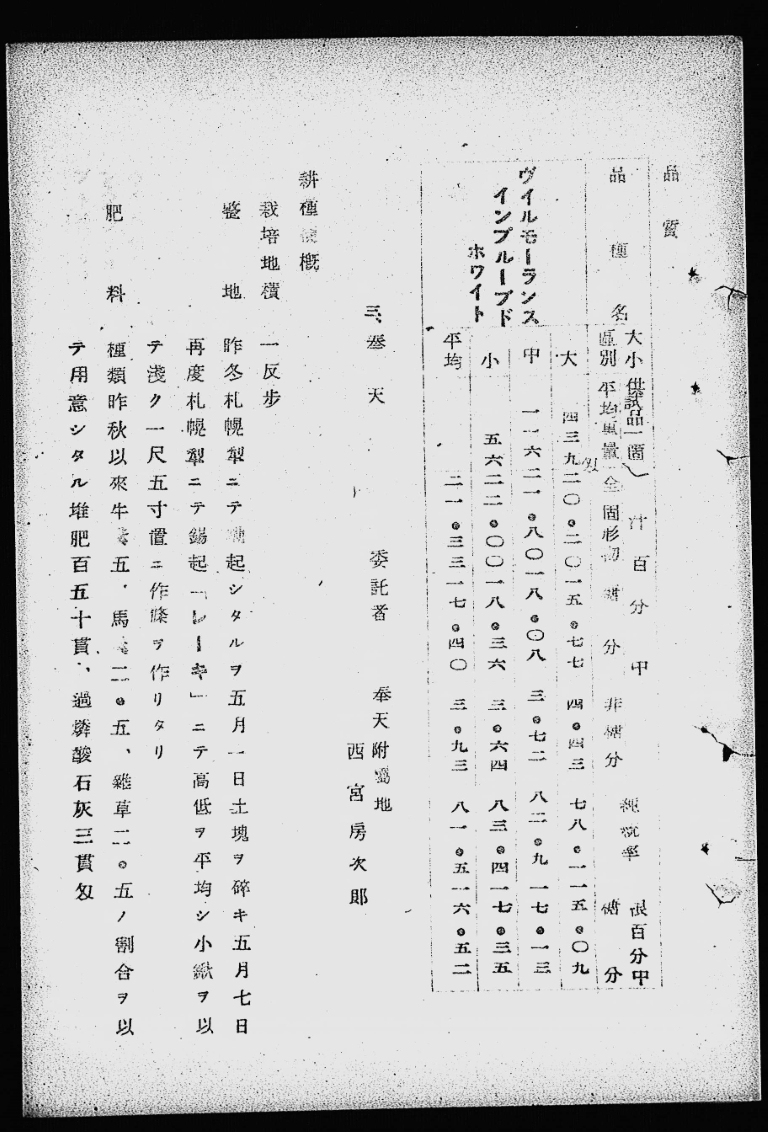 品質
品種名
大小區別
供試品一箇平均重量
汁百分中
全固形物
糖分
非糖分
純糖率
根百分中糖分
ヴイルモーランス
インプルーブド
ホワイト
大 四三九 二〇・二〇 一五・七七 四・四三 七八・一一 五・〇九
中 一一六 二一・八〇 一八・〇八 三・七二 八二・九一 七・一三
小 五六 二二・〇〇 一八・三六 三・六四 八三・四一 七・三五
平均 二一・三三 一七・四〇 三・九三 八一・五一 六・五二
三、奉天
委託者 奉天附屬地
西宮房次郎
耕種梗概
栽培地積 一反步
整地 昨冬札幌犁ニテ起シタルヲ五月一日土塊ヲ碎キ五月七日
再度札幌犁ニテ鋤起「レーキ」ニテ高低ヲ平均シ小鍬ヲ以
テ淺ク一尺五寸置ニ作條ヲ作リタリ
肥料 種類昨秋以來牛糞五、馬糞二・五、雜草二・五ノ割合ヲ以
テ用意シタル堆肥百五十貫、過燐酸石灰三貫匁